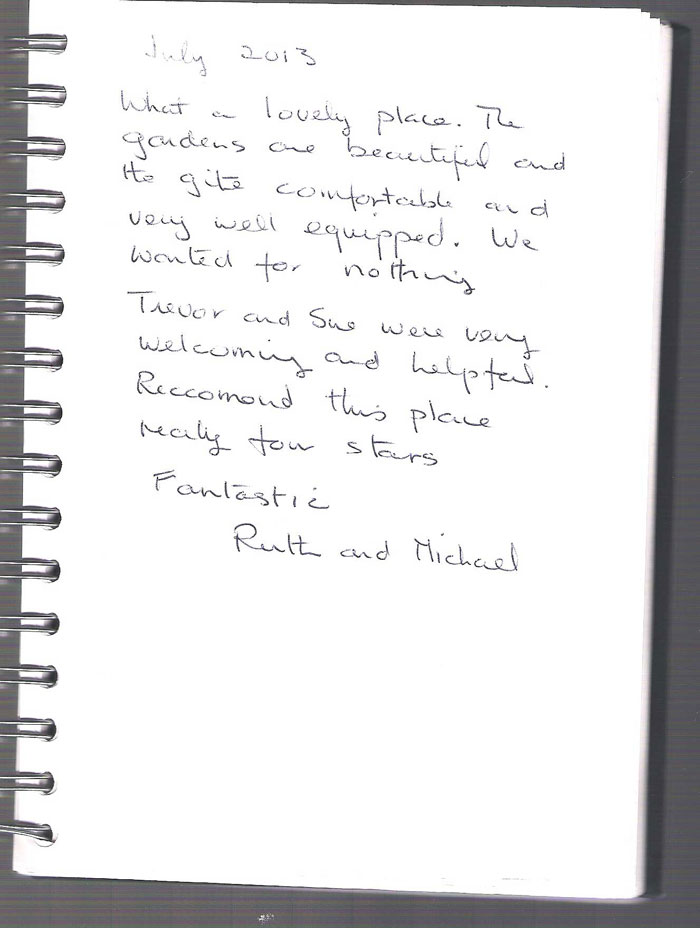 July 2013
What a lovely place. The
gardens are beautiful and
the gite comfortable and
very well equipped. We
wanted for nothing
Trevor and Sue were very
welcoming and helpful.
Reccomond this place
really four stars
Fantastic
Ruth and Michael